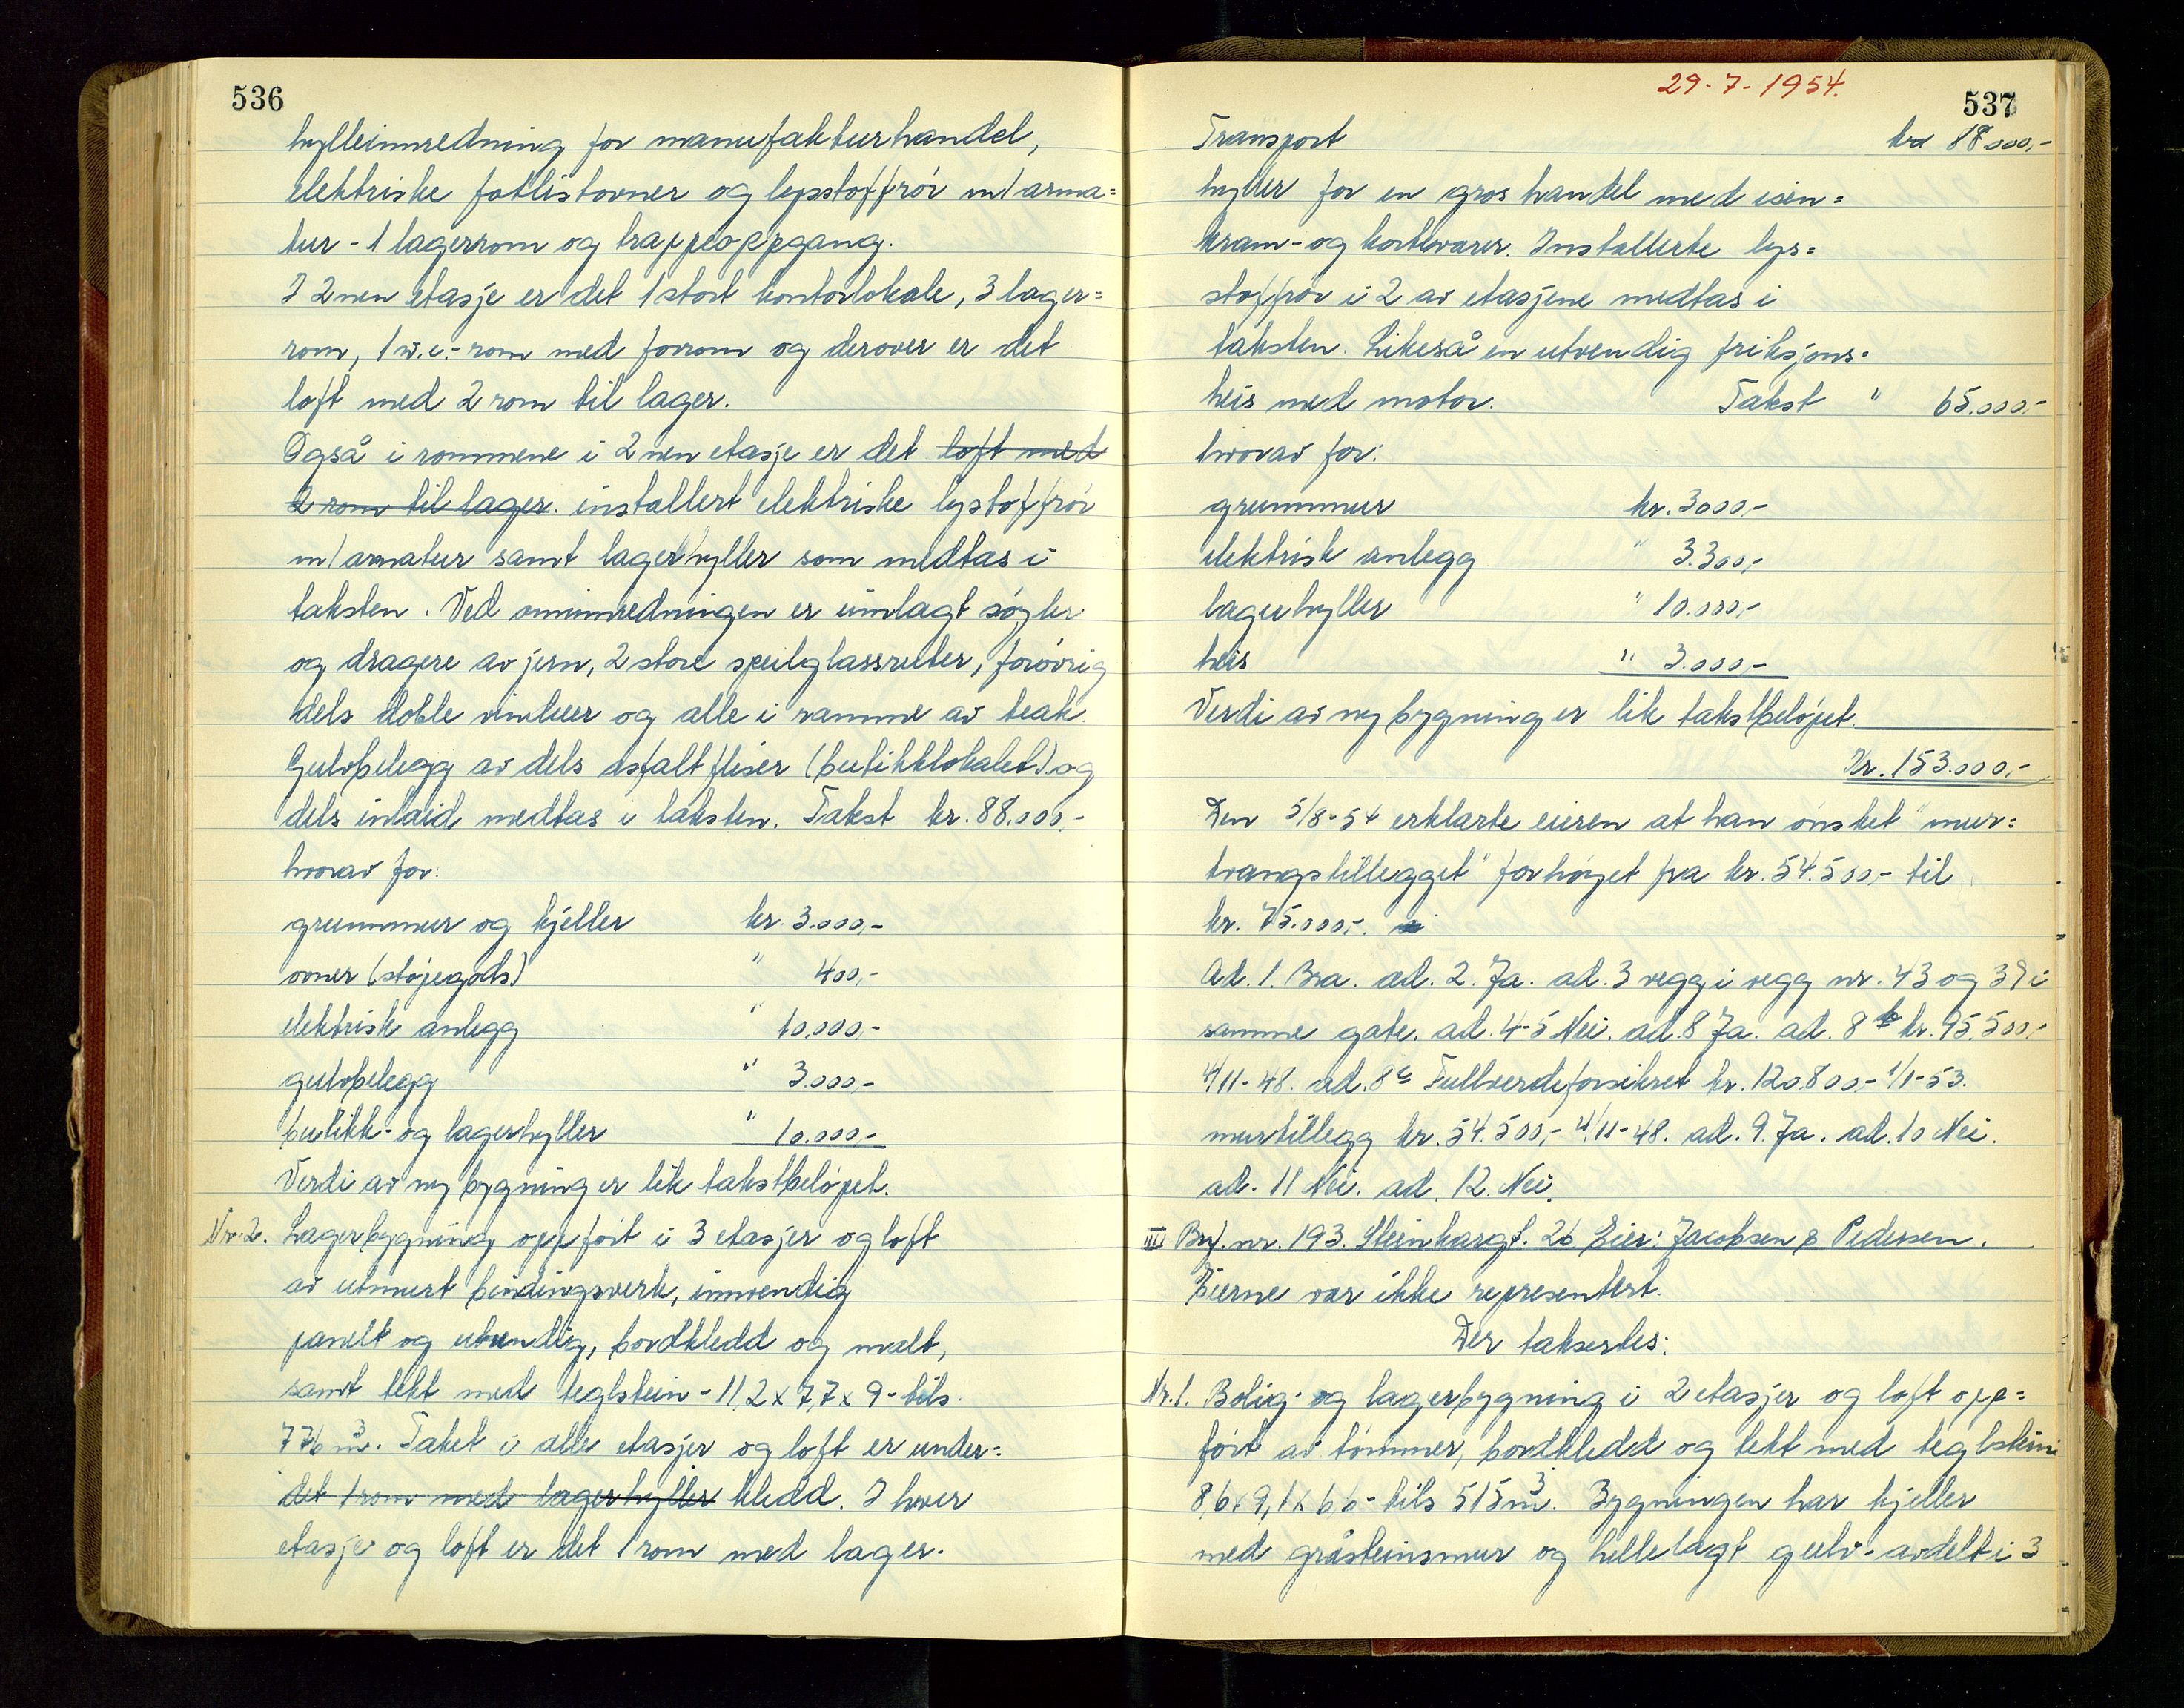 536
hylleinnredning for manufakturhandel,
elektriske fotlistovner og lysstoffrör m/arma=
tur - 1 lagerrom og trappeoppgang.
I 2nen etasje er det 1 stort kontorlokale, 3 lager=
rom, 1 w.c.-rom med forrom og derover er det
loft med 2 rom til lager.
Også i rommene i 2nen etasje er det loft med
2 rom til lager. installert elektriske lystoffrör
m/armatur samt lagerhyller som medtas i
taksten. Ved ominnredningen er innlagt söyler
og dragere av jern, 2 store speilglassruter, forövrig
dels doble vinduer og alle i ramme av teak.
Gulvbelegg av dels asfaltfliser (butikklokalet) og
dels inlaid medtas i taksten. Takst kr. 88.000,-
hvorav for:
grunnmur og kjeller kr. 3.000,-
ovner (støpegods) " 400,-
elektrisk anlegg " 10.000,-
gulvbelegg " 3.000,-
butikk- og lagerhyller " 10.000,-
Verdi av ny bygning er lik takstbelöpet.
Nr. 2. Lagerbygning oppfört i 3 etasjer og loft
av utmurt bindingsverk, innvendig
panelt og utvendig, bordkledd og malt,
samt tekt med teglstein - 11,2 x 7,7 x 9 - tils.
776 m3. Taket i alle etasjer og loft er under=
det 1 rom med lagerhyller kledd. I hver
etasje og loft er det 1 rom med lager.
29-7-1954.
537
Transport kr 88000,-
hyller for en gros handel med isen=
kram- og kortevarer. Installerte lys=
stoffrör i 2 av etasjene medtas i
taksten. Likeså en utvendig friksjons=
heis med motor. Takst " 65.000.-
hvorav for:
grunnmur kr. 3000.-
elektrisk anlegg " 3.300,-
lagerhyller " 10.000,-
heis " 3.000,-
Verdi av ny bygning er lik takstbelöpet.
Kr. 153.000,-
Den 5/8-54 erklærte eieren at han önsket "mur=
tvangstillegget" forhöyet fra kr. 54.500,- til
kr. 75.000,-.
Ad. 1. Bra. ad. 2. Ja. ad. 3 vegg i vegg nr. 43 og 39 i
samme gate. ad. 4-5 Nei. ad. 8 Ja. ad. 8 b kr. 95.500,-
4/11-48. ad. 8 c Fullverdiforsikret kr. 120.800,- 1/1-53.
murtillegg kr. 54.500,- 4/11-48. ad. 9. Ja. ad. 10 Nei.
ad. 11 Nei. ad. 12. Nei.
III Brf. nr. 193. Steinkargt. 26 Eier: Jacobsen & Pedersen.
Eierne var ikke representert.
Der taksertes:
Nr. 1. Bolig- og lagerbygning i 2 etasjer og loft opp=
fört av tömmer, bordkledd og tekt med teglstein
8,6 x 9,1 x 6,6 - tils 515 m3. Bygningen har kjeller
med gråsteinsmur og hellelagt gulv - avdelt i 3